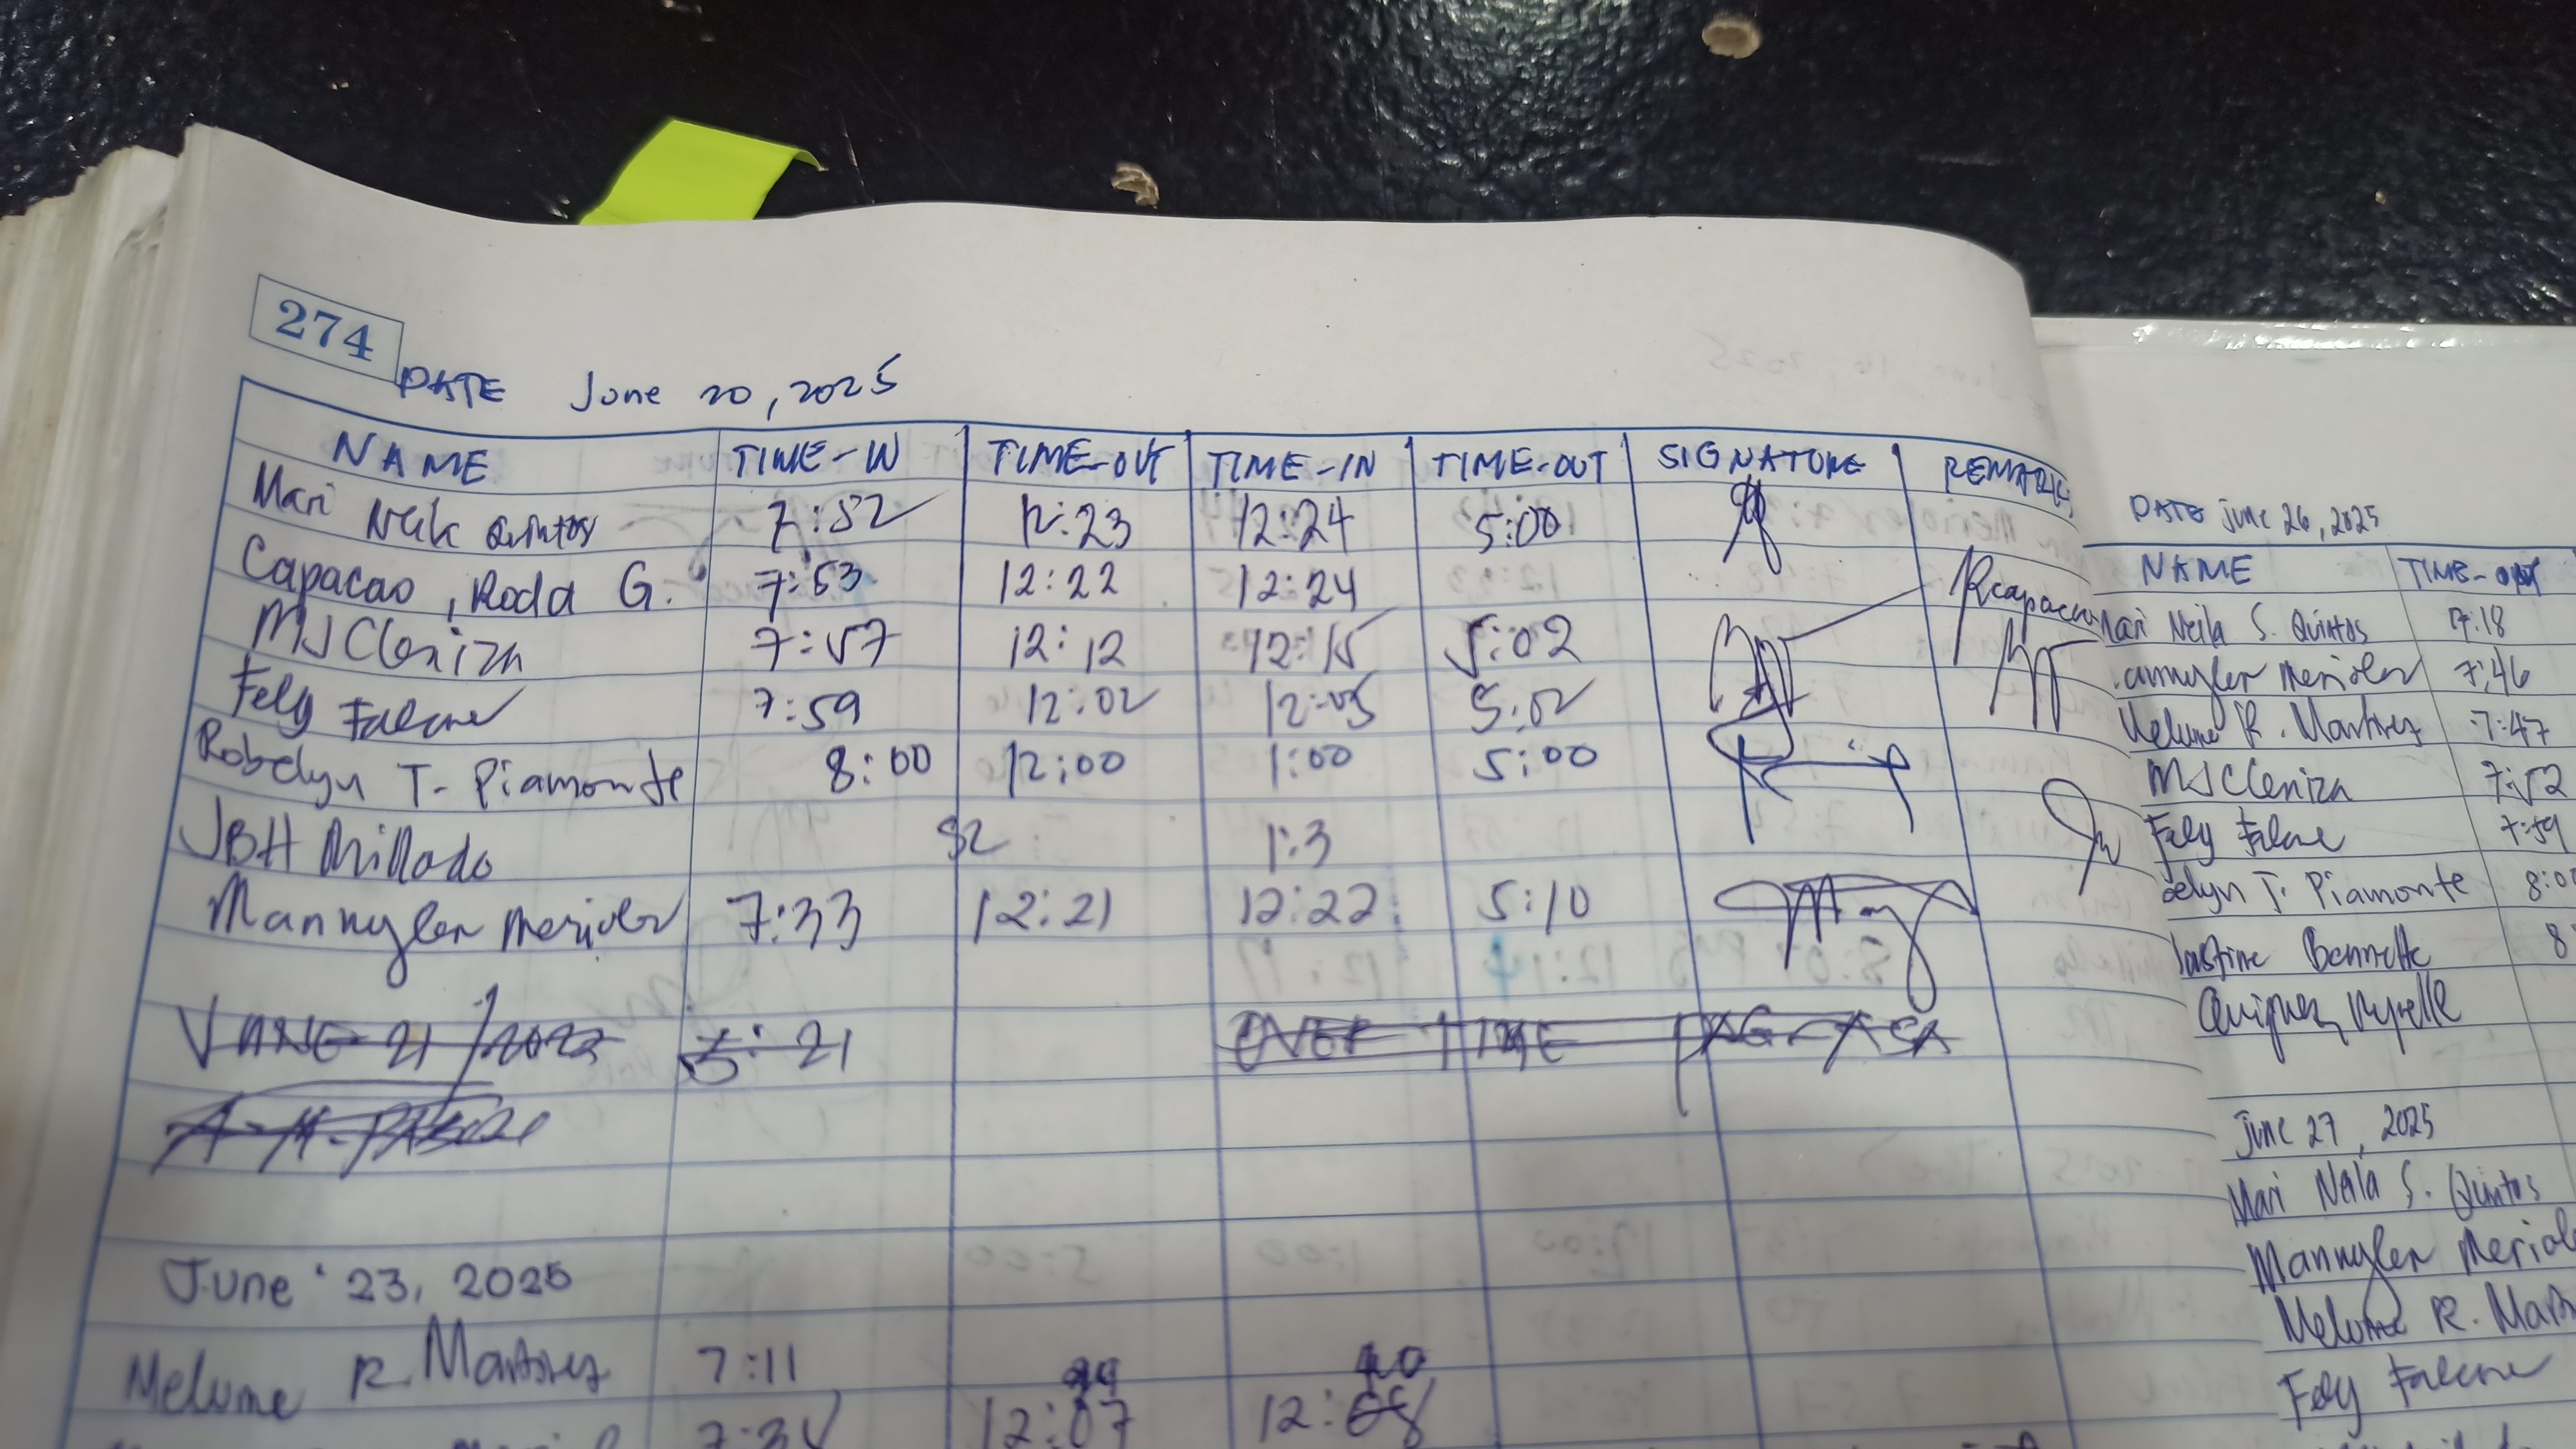 274
DATE June 20, 2025
NAME TIME-IN TIME-OUT TIME-IN TIME-OUT SIGNATURE REMARKS
Mari Neik Quintos 7:52 12:23 12:24 5:00
Capacao, Roda G. 7:53 12:22 12:24 Rcapacao
MJSCleniza 7:57 12:12 12:15 5:02
Fely Falcne 7:59 12:02 12:05 5:02
Robelyn T. Piamonte 8:00 12:00 1:00 5:00
JBH Millado 52 1:3
Mannylen Merioles 7:33 12:21 12:22 5:10
JUNE 21, 5:21 OVER TIME PAG-ASA
June 23, 2025
Melume R. Martinez 7:11
12:07 12:
DATE June 26, 2025
NAME TIME-OUT
Mari Neila S. Quintos 7:18
annylen Merioles 7:46
Melume R. Martinez 7:47
MJSCleniza 7:52
Fely Falcne 7:59
belyn T. Piamonte 8:0
8
June 27, 2025
Mari Neila S. Quintos
Mannylen Meriol
Melume R. Mart
Fely Falcne